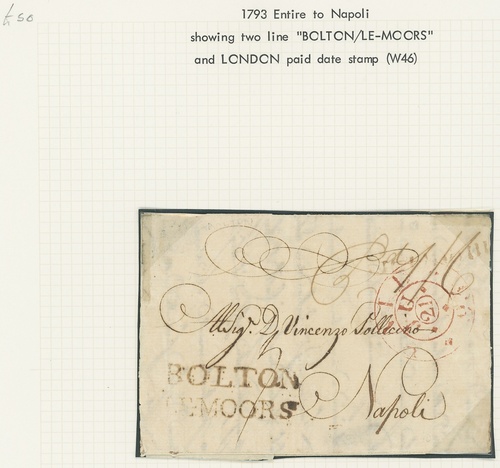 £50
1793 Entire to Napoli
showing two line "BOLTON/LE-MOORS"
and LONDON paid date stamp (W46)
All Sig.r D. Vincenzo Pollecino
BOLTON
LE MOORS
Napoli